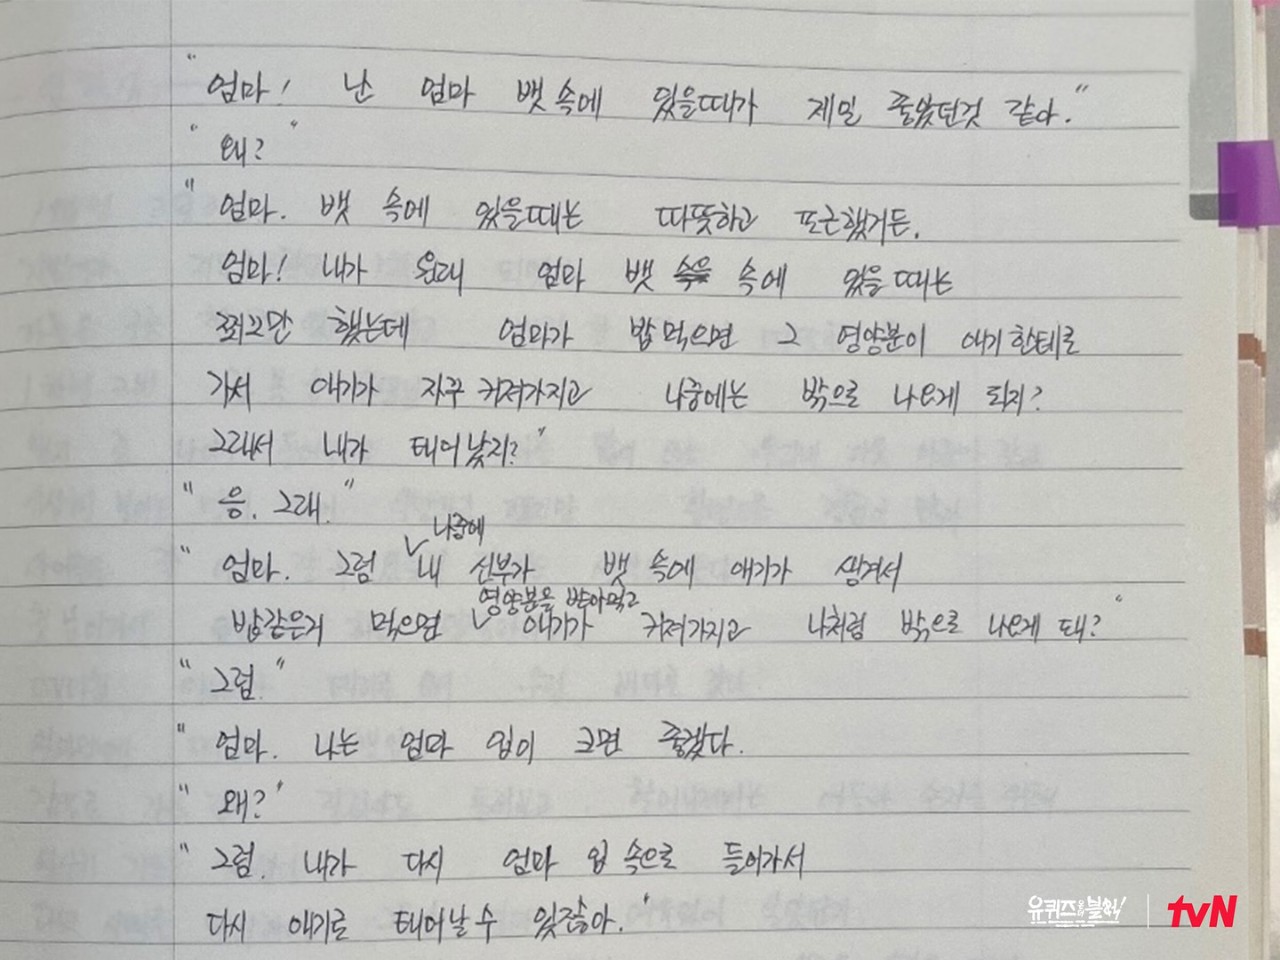 "엄마! 난 엄마 뱃속에 있을때가 제일 좋았던것 같아."
"왜?"
"엄마. 뱃 속에 있을때는 따뜻하고 포근했거든.
엄마! 내가 원래 엄마 뱃 속에 있을때는
쬐끄만 했는데 엄마가 밥먹으면 그 영양분이 애기한테로
가서 애기가 자꾸 커져가지고 나중에는 밖으로 나오게 되지?
그래서 내가 태어났지?"
"응. 그래."
나중에
"엄마. 그럼 내 신부가 뱃 속에 애기가 생겨서
영양분을 받아먹고
밥같은거 먹으면 애기가 커져가지고 나처럼 밖으로 나오게 돼?"
"그럼."
"엄마. 나는 엄마 입이 크면 좋겠다.
"왜?"
"그럼. 내가 다시 엄마 입 속으로 들어가서
다시 애기로 태어날 수 있잖아."
유퀴즈 온 더 블럭! tvN